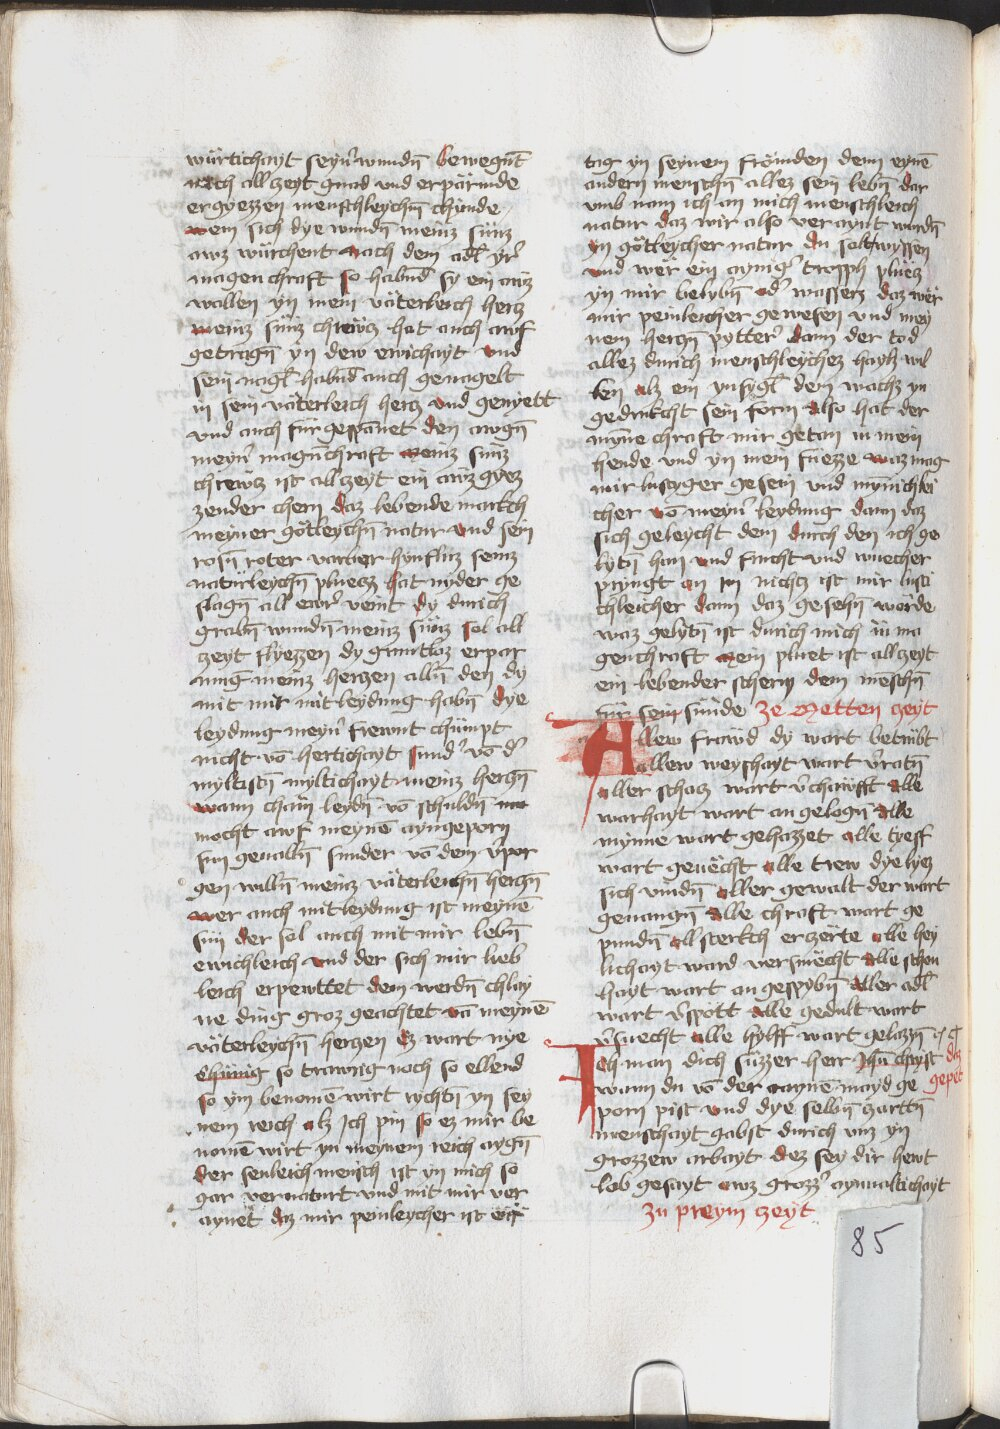 würtichayt seyn̄ wundn̄ bewegn̄t
nach allzeyt gnad vnd erpärmde
ergyezzen menschleychn̄ chunde
wem sich dye wundn̄ meinz sünz
awz würchent nach dem adl yr̄
magenchraft so habnd sy ein awz
wallen yn mein väterleich hercz
meinz sünz chrewcz hat auch awf
getragn̄ yn dew ewichayt vnd
sein nagl habnd auch genagelt
in sein väterleich hercz vnd genyett
vnd auch fur gespānet den awgn̄
meyn̄ magnchraft meinz sünz
chrewcz ist allzeyt ein awz gyez
zender chern daz lebende markch
meyner götleychn̄ natur vnd sein
rosn̄ roter varber hynfluz seinz
natürleychn̄ pluecz hat nyder ge
slagn̄ all ewr̄ veint dy durich
grabn̄ wundn̄ meinz sünz sol all
zeyt flyezzen dy gruntloz erpar
mug meinz herczen alln̄ den dy
mit mir mitleydung habn̄ dye
leydung meyn̄ frewnt chümpt
nicht vō hertichayt sunder vō der
myltistn̄ myltichayt meinz herczn̄
wann chain leydn̄ vō schuldn̄
mocht awf meynē ayngeporn
sun geualln̄ sunder vō dem v̄por
gen willn̄ meinz väterleichn̄ herczn̄
wer auch mitleydung ist meynē
sün der sol auch mit mir lebn̄
ewichleich vnd der sich mir lieb
leich erpewttet dem werdn̄ chlay
ne ding groz geachtet vā meynē
väterleychn̄ herczen Ez wart nye
chünig so trawrig noch so ellend
so ym benomē wirt rychtn̄ yn sey
nem reich alz Ich pin so ez mir be
nomē wirt yn meynem reich aygn̄
der senleich mensch ist yn mich so
gar vernaturt vnd mit mir ver
aynet daz mir peinleycher ist
tag yn seynem frömden denn eynē
andern menschn̄ allez sein lebn̄ dar
vmb nam ich an mich menschleich
natur daz wir also veraynt wurdn̄
yn götleycher natur du solt wyssen
vnd wer ein aynig' tropph pluecz
yn mir belybn̄ od' wassers daz wer
mir peinleicher gewesen vnd mey
nem herczn̄ pytter' dann der tod
allez durich menschleychez hayls wil
len alz ein ynsygl dem wachs yn
gedrukcht sein form also hat der
mynne chraft mir getan in mein
hende vnd yn mein füezze waz mag
mir lustyger gesein vnd mynnichlei
cher vō meyn̄ leydung dann daz
sich geleycht dem durch den ich ge
lytn̄ han vnd frucht vnd wuecher
pryngt an im nichtz ist mir lusti
chleicher dann daz gesehn̄ werde
waz gelytn̄ ist durich mich in ma
genchraft mein pluet ist allzeyt
ein lebender scherm dem menschn̄
für sein sünde ze Metten zeyt
Allew frawd dy wart betrübt
allew weyshayt wart v̄ratn̄
aller schacz wart v̄chawfft alle
warhayt wart angelogn̄ alle
mynne wart gehazzet alle tyeff
wart geuecht alle trew dye lyez
sich vindn̄ aller gewalt der wart
geuangn̄ alle chraft wart ge
pundn̄ all sterkch erczerte alle hey
lichayt ward versmecht alle schon
hayt wart angespybn̄ aller adl
wart v̄spott alle gedult wart
v̄suecht alle hylff wart gelazzn̄
Ich man dich süzzer herr Ihū christ daz gepet
wann du vō der raynē mayd ge
porn pist vnd dye selbn̄ zartn̄
menschayt gabst durich vnz yn
grozzew arbayt dez sey dir hewt
lob gesayt awz grozz' aynualtichayt
zu preym zeyt
85